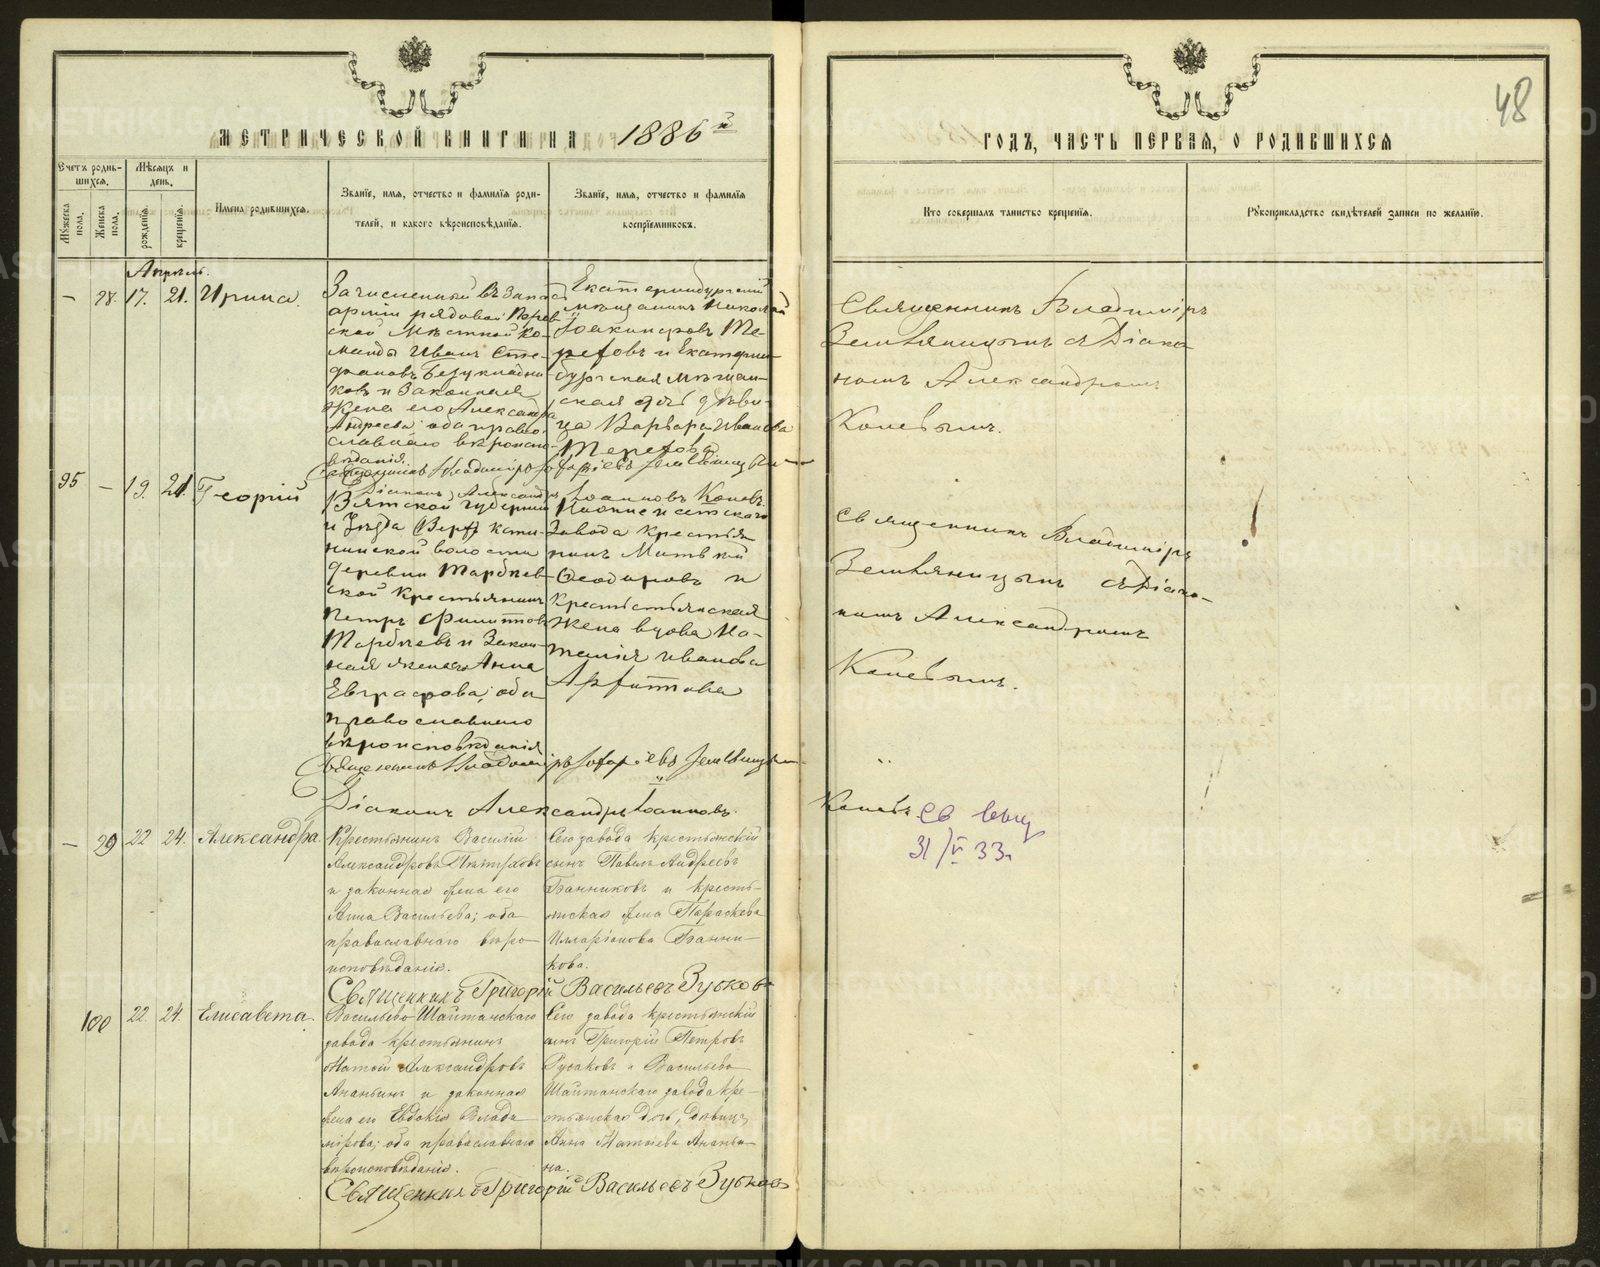 48
МЕТРИЧЕСКОЙ КНИГИ НА 1886 й
ГОДЪ, ЧАСТЬ ПЕРВАЯ, О РОДИВШИХСЯ
Счетъ роди-
вшихся.
Мѣсяцъ и
день.
Мужеска
пола.
Женска
пола.
рожденія.
крещенія.
Имена родившихся.
Званіе, имя, отчество и фамилія роди-
телей, и какого вѣроисповѣданія.
Званіе, имя, отчество и фамилія
воспріемниковъ.
Кто совершалъ таинство крещенія.
Рукоприкладство свидѣтелей записи по желанію.
Апрѣль.
— 98. 17. 21. Ирина.
Зачисленный въ запасъ
арміи рядовой
ской мѣстной ко-
манды Иванъ Сте-
фановъ
ковъ и законная
жена его Александра
Андреева оба право-
славнаго вѣроиспо-
вѣданія.
Екатеринбургскій
мѣщанинъ Николай
Іоакимовъ Те-
рехов и Екатерин-
бургская мѣщан-
ская дѣви-
ца Варвара Иванова
Терехова
Священникъ Владиміръ Земляницынъ
Діаконъ Александръ Іоанновъ Коневъ.
Священникъ Владиміръ
Земляницынъ съ Діако
номъ Александромъ
Коневымъ.
95 — 19. 21. Георгій
Вятской губерніи
и Уѣзда
нинской волости
деревни
ской крестьянинъ
Петръ Филиппов
и Закон-
ная жена Анна
Евграфова, оба
православнаго
вѣроисповѣданія
Завода крестья
нинъ Матвѣй
Ѳеодоровъ и
крестьянская
жена вдова На-
талія Иванова
Священникъ Владиміръ Земляницынъ
Діаконъ Александръ Іоанновъ. Коневъ
Священникъ Владиміръ
Земляницынъ съ Діако-
номъ Александромъ
Коневымъ.
31/V 33г
— 99 22 24. Александра.
Крестьянинъ Василій
Александровъ Пѣтуховъ
и законная жена его
Анна Васильева; оба
православнаго вѣро-
исповѣданія.
Сего завода крестьянскій
сынъ Павелъ Андреевъ
Банниковъ и кресть-
янская жена Параскева
Илларіонова Банни-
кова.
Священникъ Григорій Васильевъ Зубковъ
100 22. 24. Елисавета.
Васильево-Шайтанскаго
завода крестьянинъ
Матѳій Александровъ
Ананьинъ и законная
жена его Евдокія Влади
мірова; оба православнаго
вѣроисповѣданія.
Сего завода крестьянскій
сынъ Григорій Петровъ
Русаковъ и Васильево
Шайтанскаго завода кре-
стьянская дочь, дѣвица
Анна Матѳіева Ананьи-
на.
Священникъ Григорій Васильевъ Зубковъ
METRIKI.GASO-URAL.RU